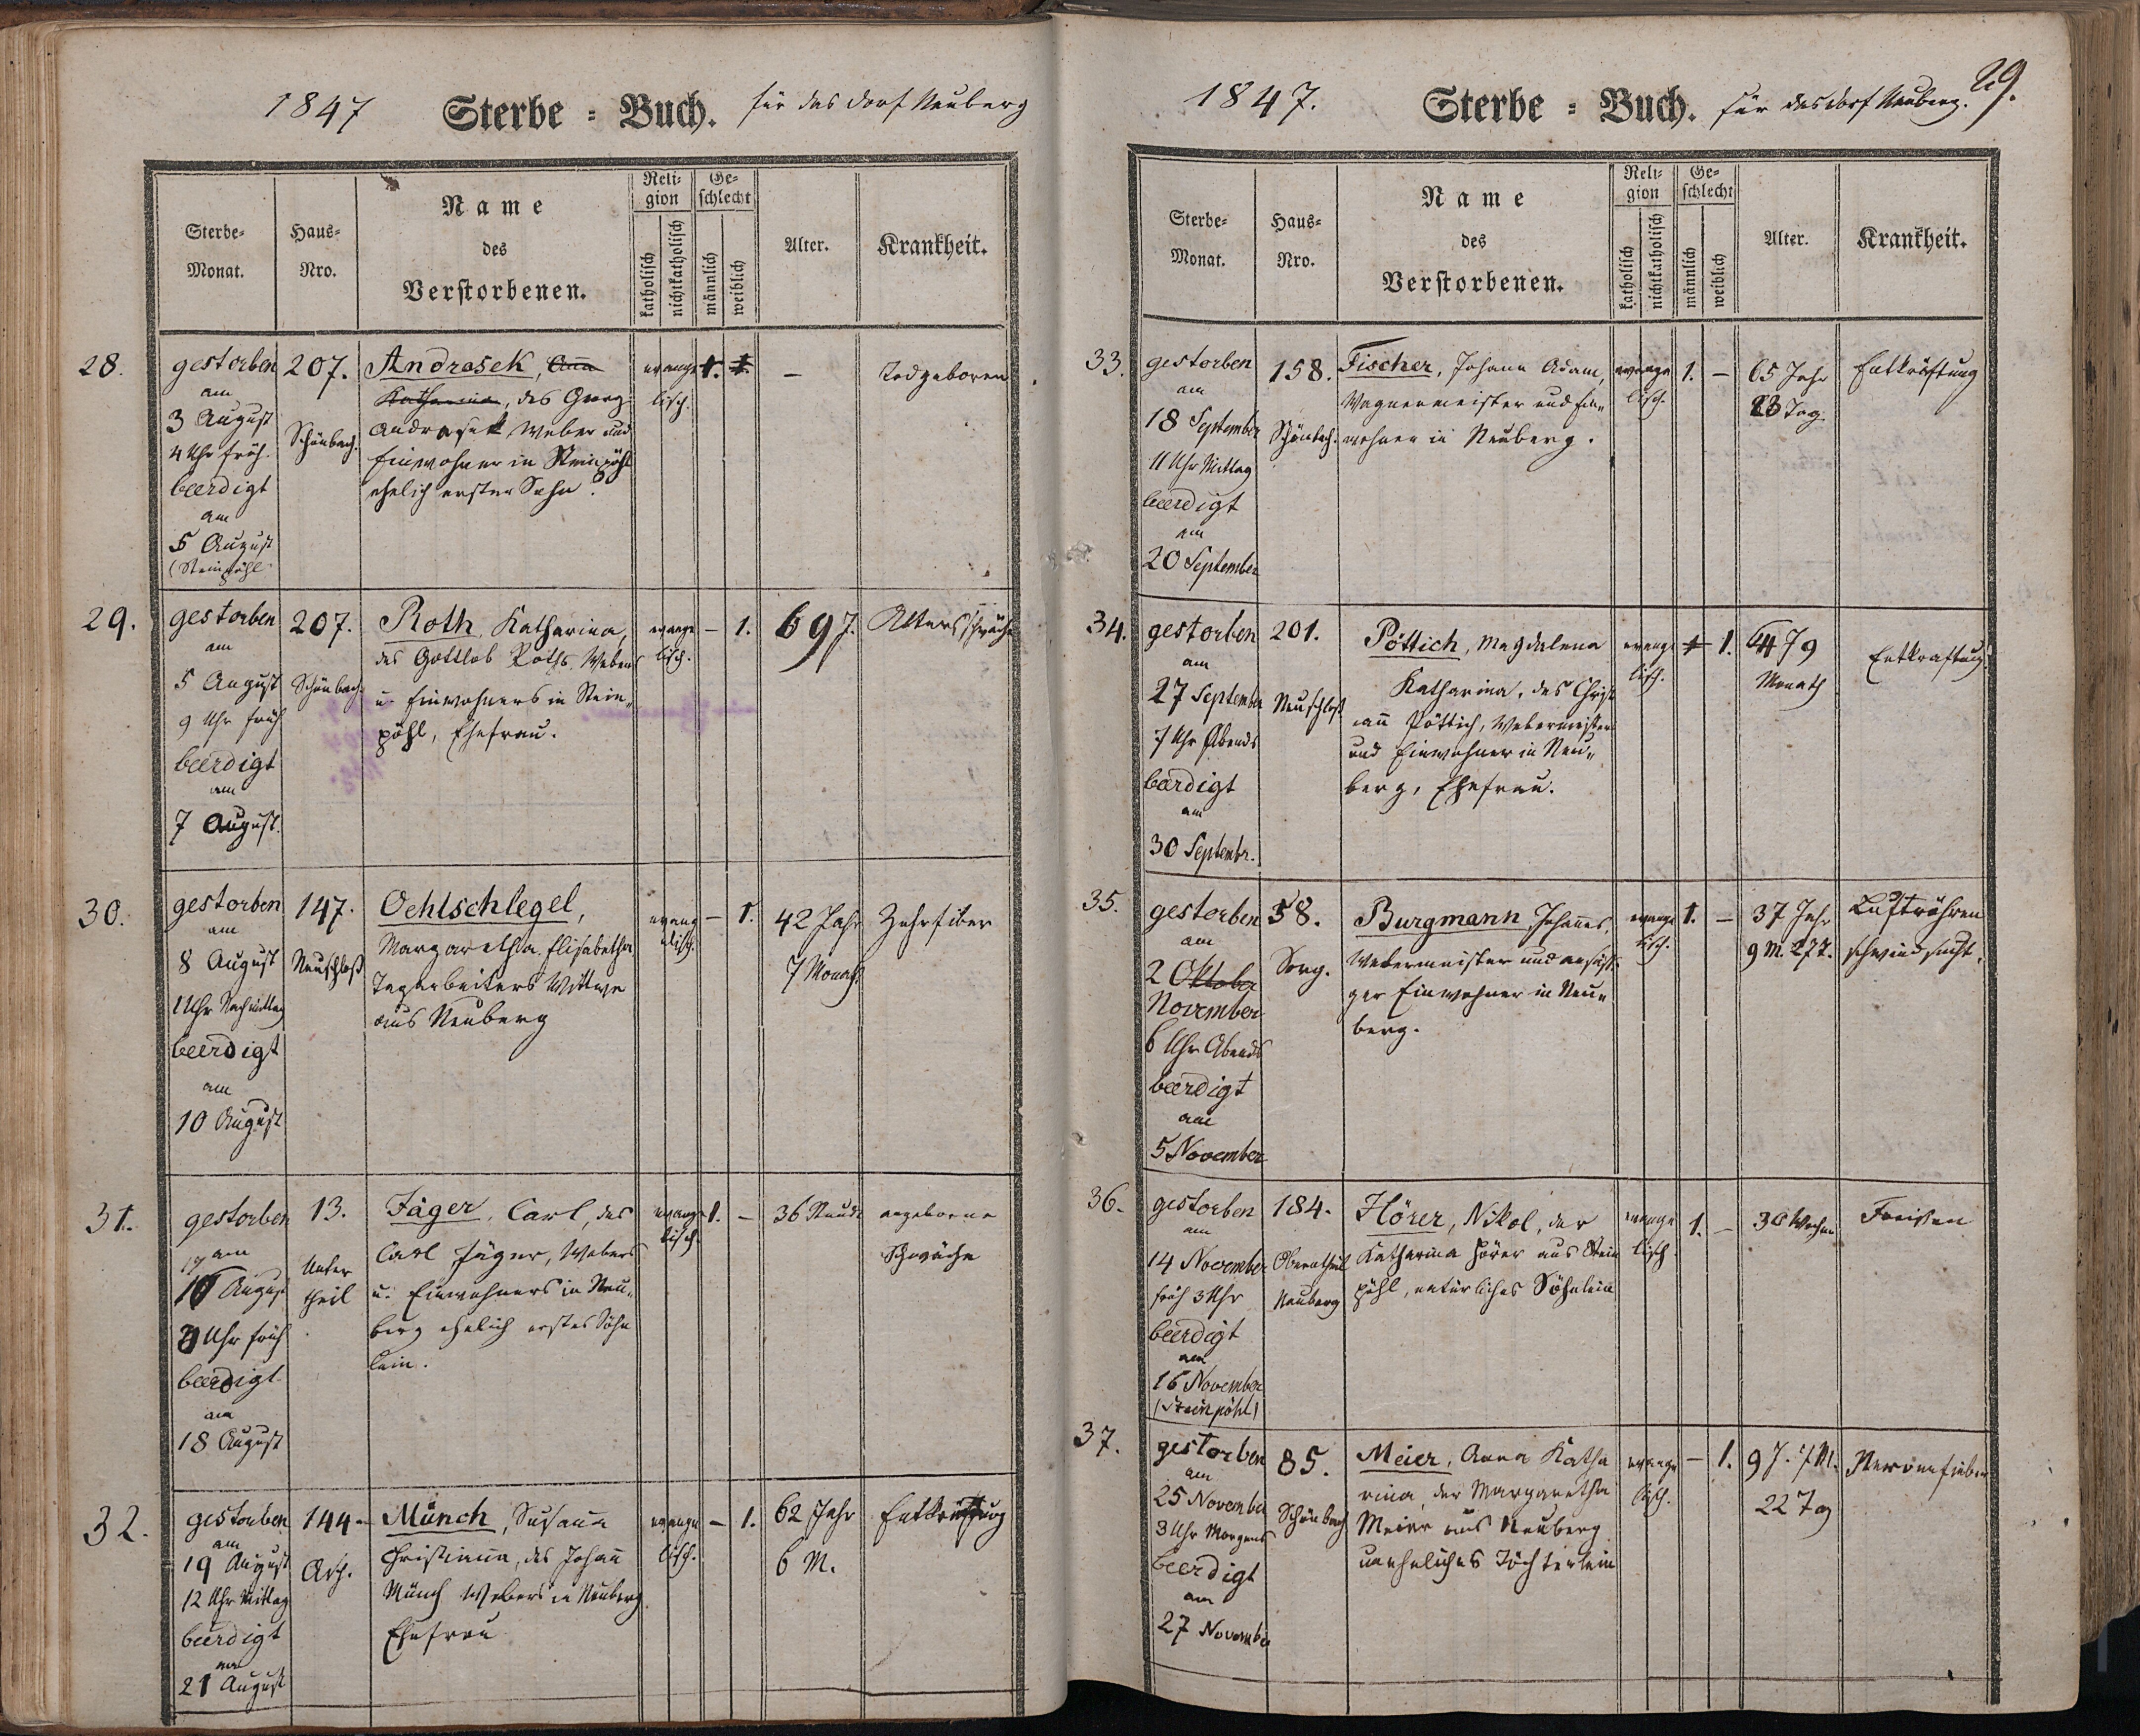 1847 Sterbe = Buch. für das Dorf Neuberg
Sterbe-
Monat.
Haus-
Nro.
Name
des
Verstorbenen.
Reli-
gion
katholisch
nichtkatholisch
Ge-
schlecht
männlich
weiblich
Alter.
Krankheit.
28.
gestorben
am
3 August
4 Uhr früh.
beerdigt
am
5 August
(Steinpöhl
207.
Schönbach.
Andrasek, Anna
Katharina, des Georg
Andrasek Weber und
Einwohner in Steinpöhl
ehelich erster Sohn.
evange
lisch.
1. 1.
–
Todgeboren
29.
gestorben
am
5 August
9 Uhr früh
beerdigt
am
7 August.
207.
Schönbach.
Roth, Katharina,
des Gottlob Roths, Webers
u. Einwohners in Stein-
pöhl, Ehefrau.
evange
lisch.
– 1.
69 J.
Altersschwäche
30.
gestorben
am
8 August
1 Uhr Nachmittag
beerdigt
am
10 August
147.
Neuschloß
Oehlschlegel,
Margaretha Elisabetha
Tagarbeiters Wittwe
aus Neuberg
evang
elisch.
– 1.
42 Jahr
7 Monath
Zehrfieber
31.
gestorben
am
17
August
Uhr früh
beerdigt
am
18 August
13.
Unter
theil
Jäger, Carl, des
Carl Jäger, Webers
u. Einwohners in Neu-
berg ehelich erstes Söhn
lein.
evange
lisch.
1. –
36
angeborne
Schwäche
32.
gestorben
am
19 August
12 Uhr Mittag
beerdigt
am
21 August
144.
Asch.
Münch, Susanna
Christianna, des Johann
Münch Webers in Neuberg
Ehefrau
evange
lisch.
– 1.
62 Jahr
6 M.
Entkräftung
1847. Sterbe = Buch. für das Dorf Neuberg. 29.
Sterbe-
Monat.
Haus-
Nro.
Name
des
Verstorbenen.
Reli-
gion
katholisch
nichtkatholisch
Ge-
schlecht
männlich
weiblich
Alter.
Krankheit.
33.
gestorben
am
18 September
11 Uhr Mittag
beerdigt
am
20 September
158.
Schönbach.
Fischer, Johann Adam,
Wagnermeister und Ein-
wohner in Neuberg.
evange
lisch.
1. –
65 Jahr
Tag.
Entkräftung
34.
gestorben
am
27 September
7 Uhr Abends
beerdigt
am
30 Septembr.
201.
Neuschloß
Pöttich, Magdalena
Katharina, des Christi
ann Pöttich, Webermeister
und Einwohner in Neu-
berg, Ehefrau.
evange
lisch.
1 1.
9
Monath
Entkraftung
35.
gestorben
am
2 Oktober
November
6 Uhr Abends
beerdigt
am
5 November
58.
Sorg.
Burgmann Johannes,
Webermeister und ansäßi
ger Einwohner in Neu-
berg.
evange
lisch.
1. –
37 Jahr
9 M. 27 T.
Luftröhren
schwindsucht.
36.
gestorben
am
14 November
früh 3 Uhr
beerdigt
am
16 November
(Steinpöhl)
184.
Obertheil
Neuberg
Hörer, Nikol, der
Katharina Hörer aus Stein
pöhl, natürliches Söhnlein
evange
lisch.
1. –
36 Wochen
Fraisen
37.
gestorben
am
25 November
3 Uhr Morgens
beerdigt
am
27 November
85.
Schönbach
Meier, Anna Katha
rina, der Margaretha
Meier aus Neuberg
uneheliches Töchterlein
evange
lisch.
– 1.
9 J. 7 M.
22 Tag
Nervenfieber